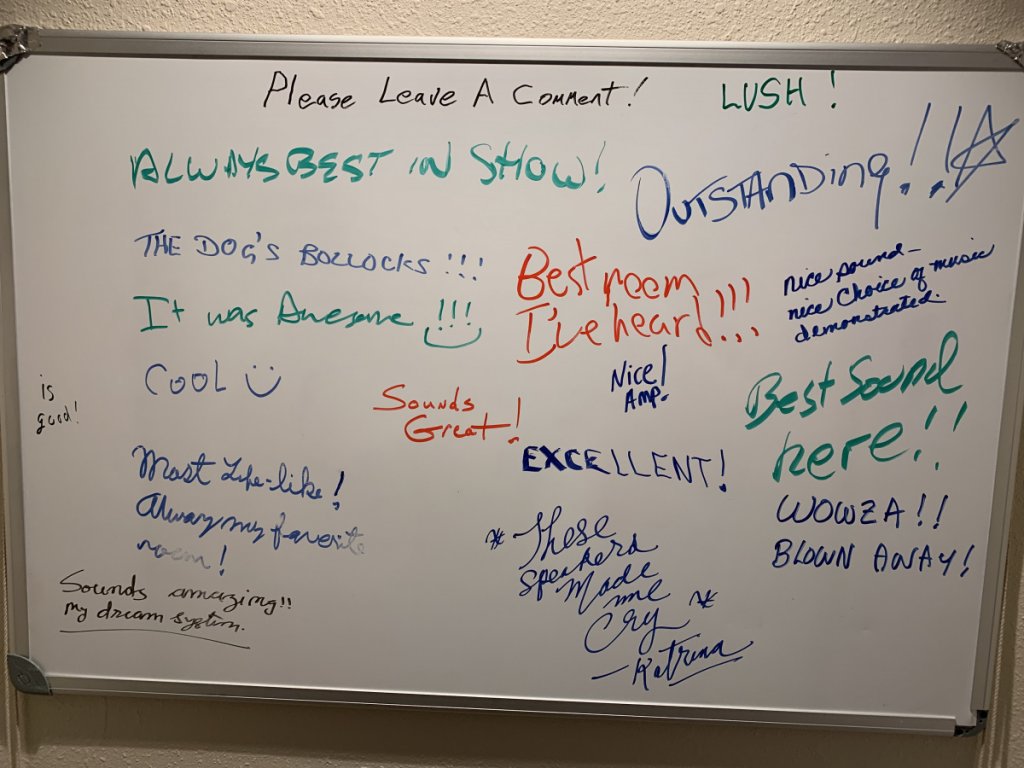 Please Leave A Comment!
LUSH!
ALWAYS BEST IN SHOW!
OUTSTANDing!!
THE DOG'S BOLLOCKS !!!
Best room
I've heard!!!
nice sound–
nice choice of music
demonstrated.
It was Awesome !!!
COOL
is
good!
Sounds
Great!
Nice!
Amp.
Best Sound
here!!
EXCELLENT!
Most Life-like!
Always my favorite
room!
WOWZA!!
BLOWN AWAY!
These
speakers
Made
me
Cry
–Katrina
Sounds amazing!!
My dream system.